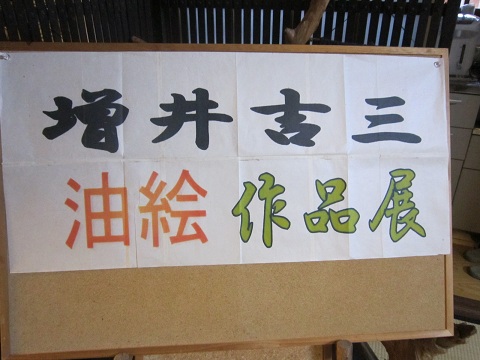 増井吉三
油絵作品展